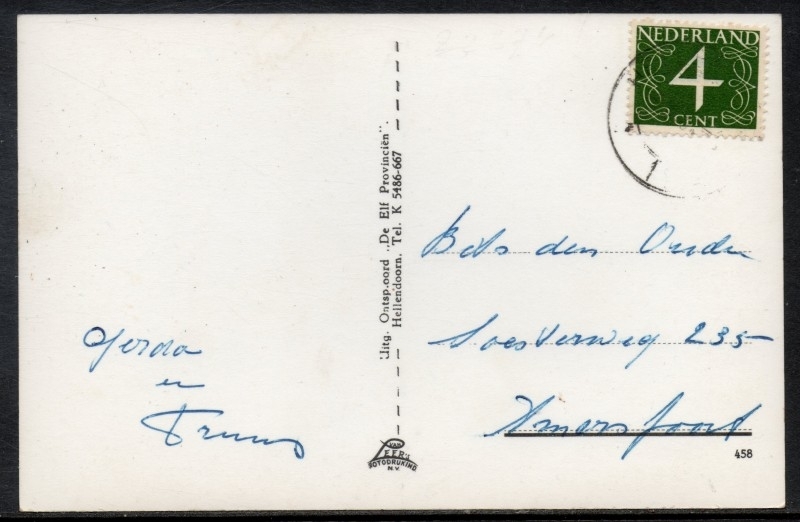 NEDERLAND
4
CENT
Gerda
en
Truus
Uitg. Ontsp.oord „De Elf Provinciën".
Hellendoorn. Tel. K 5486-667
VAN
LEER's
FOTODRUKIND
N.V.
Bets den Ouden
Soesterweg 235
Amersfoort
458